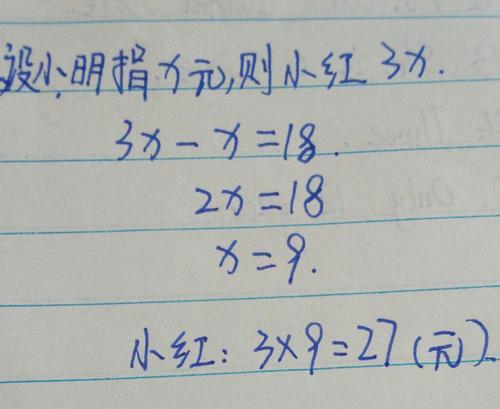 设小明捐x元,则小红 3x.
3x - x = 18.
2x = 18
x = 9.
小红: 3×9=27(元)